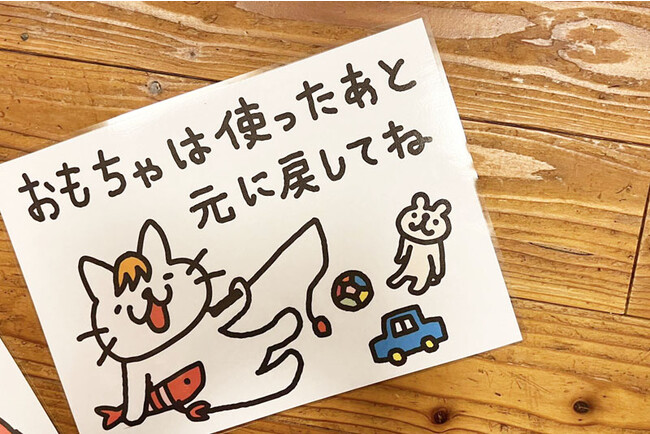 おもちゃは使ったあと
元に戻してね